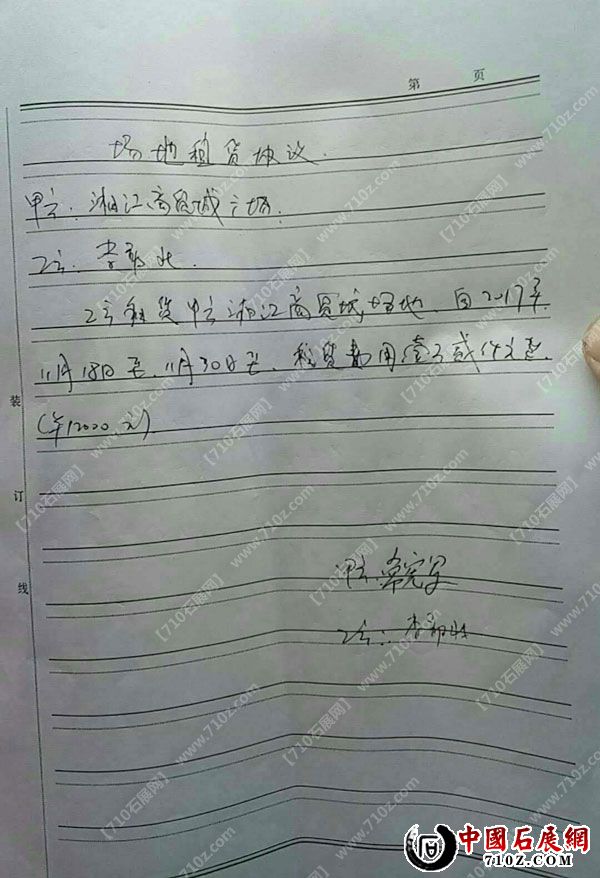 第 页
场地租赁协议
甲方:湘江商贸城广场.
乙方:李
乙方租赁甲方湘江商贸城场地、自2017年
11月18日至、11月30日至、租赁费用壹万贰仟元整.
(¥12000元)
甲方:
乙方:李
装
订
线
【710石展网】
www.710z.com
中國石展網
710Z.COM